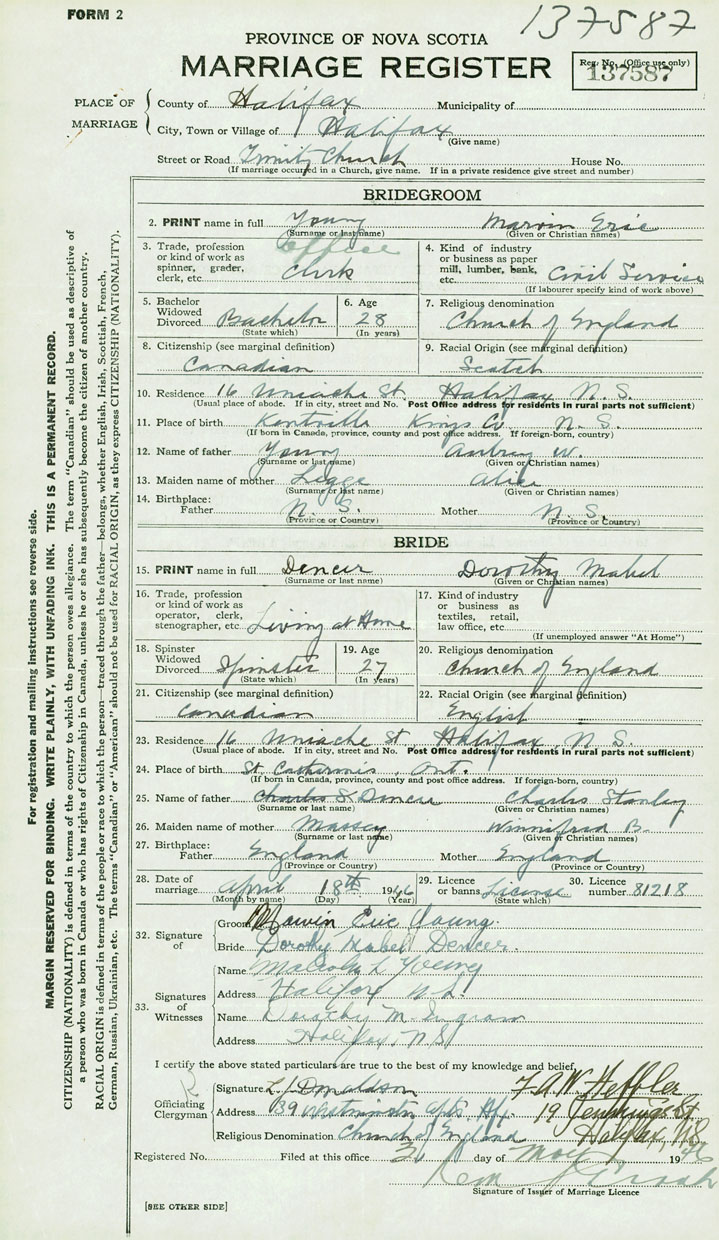 FORM 2
137587
PROVINCE OF NOVA SCOTIA
MARRIAGE REGISTER
Reg. No. (Office use only)
137587
PLACE OF MARRIAGE
County of Halifax Municipality of
City, Town or Village of Halifax
(Give name)
Street or Road Trinity Church House No.
(If marriage occurred in a Church, give name. If in a private residence give street and number)
BRIDEGROOM
2. PRINT name in full Young Marvin Eric
(Surname or last name) (Given or Christian names)
3. Trade, profession or kind of work as spinner, grader, clerk, etc. Office Clerk
4. Kind of industry or business as paper mill, lumber, bank, etc. Civil Service
(If labourer specify kind of work above)
5. Bachelor Widowed Divorced Bachelor
(State which)
6. Age 28
(In years)
7. Religious denomination Church of England
8. Citizenship (see marginal definition) Canadian
9. Racial Origin (see marginal definition) Scotch
10. Residence 16 Uniacke St. Halifax N. S.
(Usual place of abode. If in city, street and No. Post Office address for residents in rural parts not sufficient)
11. Place of birth Kentville Kings Co N. S.
(If born in Canada, province, county and post office address. If foreign-born, country)
12. Name of father Young Aubrey W.
(Surname or last name) (Given or Christian names)
13. Maiden name of mother Legge Alice
(Surname or last name) (Given or Christian names)
14. Birthplace: Father N. S. Mother N. S.
(Province or Country) (Province or Country)
BRIDE
15. PRINT name in full Dencer Dorothy Mabel
(Surname or last name) (Given or Christian names)
16. Trade, profession or kind of work as operator, clerk, stenographer, etc. Living at Home
17. Kind of industry or business as textiles, retail, law office, etc.
(If unemployed answer "At Home")
18. Spinster Widowed Divorced Spinster
(State which)
19. Age 27
(In years)
20. Religious denomination Church of England
21. Citizenship (see marginal definition) Canadian
22. Racial Origin (see marginal definition) English
23. Residence 16 Uniacke St Halifax, N. S.
(Usual place of abode. If in city, street and No. Post Office address for residents in rural parts not sufficient)
24. Place of birth St. Catherines, Ont.
(If born in Canada, province, county and post office address. If foreign-born, country)
25. Name of father Charles S. Dencer Charles Stanley
(Surname or last name) (Given or Christian names)
26. Maiden name of mother Massey Winnifred B.
(Surname or last name) (Given or Christian names)
27. Birthplace: Father England Mother England
(Province or Country) (Province or Country)
28. Date of marriage April 18th 1946
(Month by name) (Day) (Year)
29. Licence or banns License
(State which)
30. Licence number 81218
32. Signature of
Groom Marvin Eric Young
Bride Dorothy Mabel Dencer.
33. Signatures of Witnesses
Name Malcolm L Young
Address Halifax N.S.
Name Dorothy M. Ingram
Address Halifax, N.S.
I certify the above stated particulars are true to the best of my knowledge and belief,
Officiating Clergyman
Signature L. J. Donaldson F. A. W. Heffler
Address B9 Westminster Apts. Hfx. 19 Jennings St
Religious Denomination Church of England Halifax N.S.
Registered No. Filed at this office 3 day of May 1946
Signature of Issuer of Marriage Licence
[SEE OTHER SIDE]
For registration and mailing instructions see reverse side.
MARGIN RESERVED FOR BINDING. WRITE PLAINLY, WITH UNFADING INK. THIS IS A PERMANENT RECORD.
CITIZENSHIP (NATIONALITY) is defined in terms of the country to which the person owes allegiance. The term "Canadian" should be used as descriptive of
a person who was born in Canada or who has rights of Citizenship in Canada, unless he or she has subsequently become the citizen of another country.
RACIAL ORIGIN is defined in terms of the people or race to which the person—traced through the father—belongs, whether English, Irish, Scottish, French,
German, Russian, Ukrainian, etc. The terms "Canadian" or "American" should not be used for RACIAL ORIGIN, as they express CITIZENSHIP (NATIONALITY).